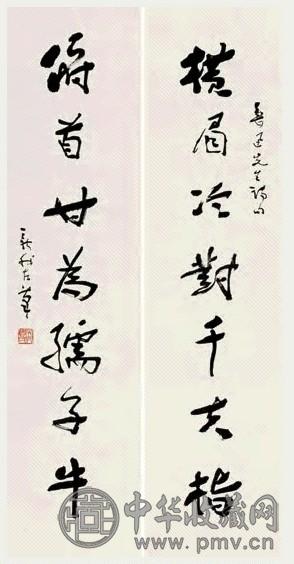 魯迅先生詩句
橫眉冷對千夫指
俯首甘為孺子牛
中华收藏网
www.pmv.cn